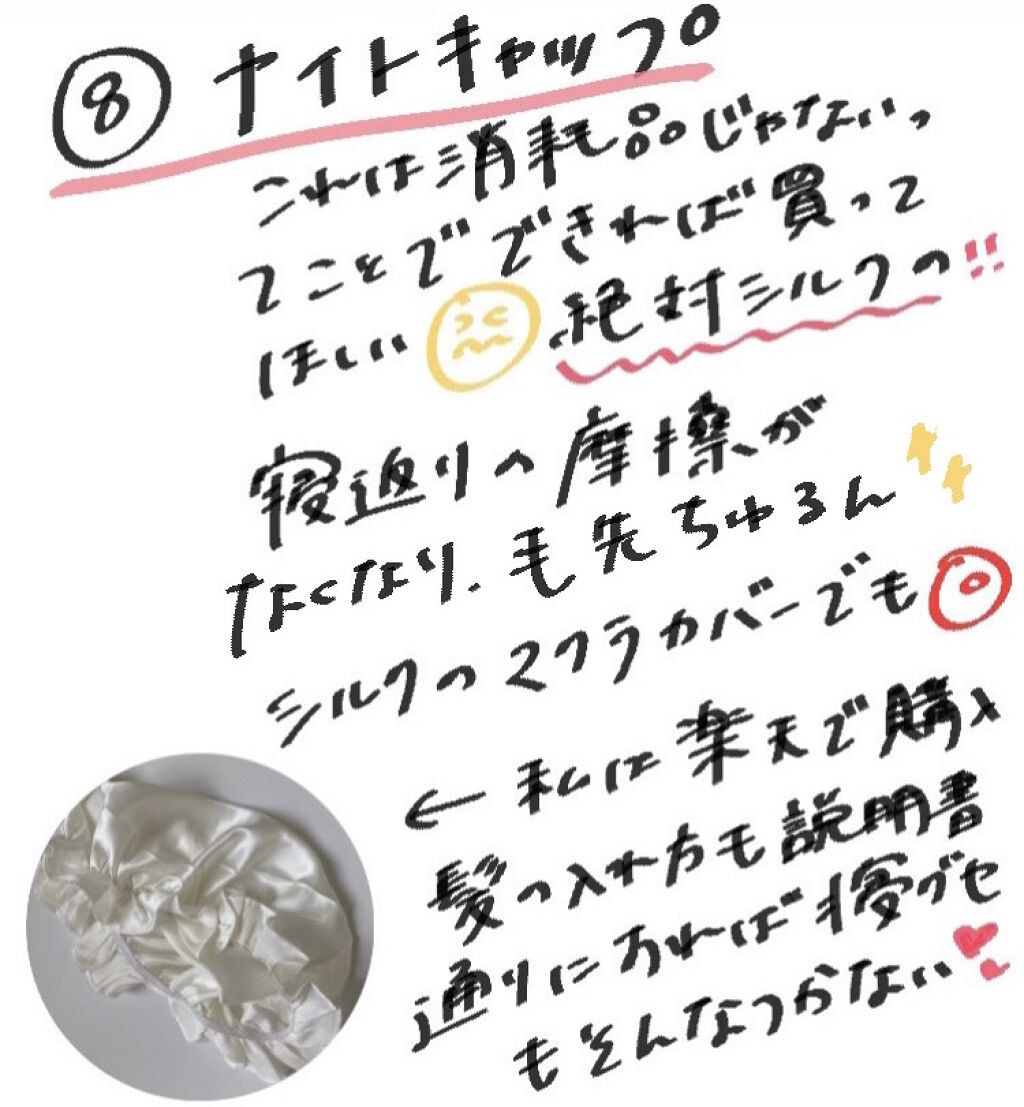 ⑧ ナイトキャップ
これは消耗品じゃないっ
てことでできれば買って
ほしい 絶対シルクの!!
寝返りの摩擦が
なくなり、毛先ちゅるん
シルクのマクラカバーでも
← 私は楽天で購入
髪の入れ方も説明書
通りにやれば寝グセ
もそんなつかない